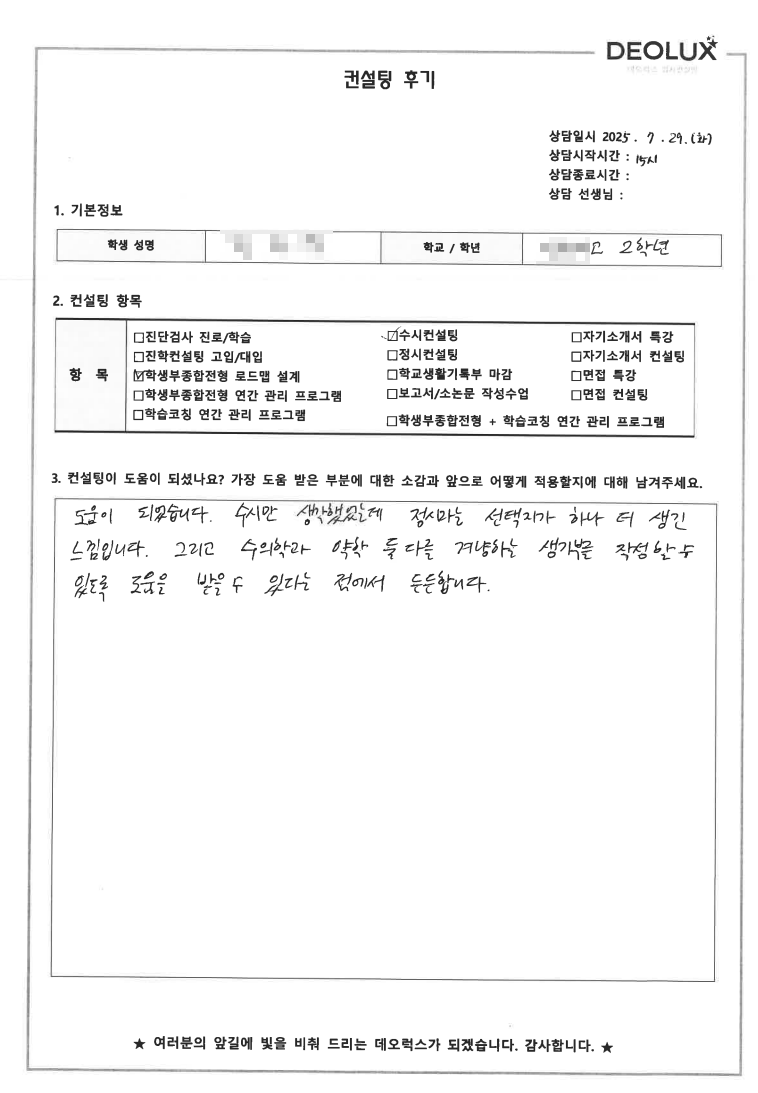 DEOLUX
컨설팅 후기
상담일시 2025. 7. 29.(화)
상담시작시간 : 15시
상담종료시간 :
상담 선생님 :
1. 기본정보
학생 성명
학교 / 학년
고 2학년
2. 컨설팅 항목
항 목
□진단검사 진로/학습 ☑수시컨설팅 □자기소개서 특강
□진학컨설팅 고입/대입 □정시컨설팅 □자기소개서 컨설팅
☑학생부종합전형 로드맵 설계 □학교생활기록부 마감 □면접 특강
□학생부종합전형 연간 관리 프로그램 □보고서/소논문 작성수업 □면접 컨설팅
□학습코칭 연간 관리 프로그램 □학생부종합전형 + 학습코칭 연간 관리 프로그램
3. 컨설팅이 도움이 되셨나요? 가장 도움 받은 부분에 대한 소감과 앞으로 어떻게 적용할지에 대해 남겨주세요.
도움이 되었습니다. 수시만 생각했었는데 정시라는 선택지가 하나 더 생긴
느낌입니다. 그리고 수의학과 약학 둘 다를 겨냥하는 생기부를 작성할 수
있도록 도움을 받을 수 있다는 점에서 든든합니다.
★ 여러분의 앞길에 빛을 비춰 드리는 데오럭스가 되겠습니다. 감사합니다. ★